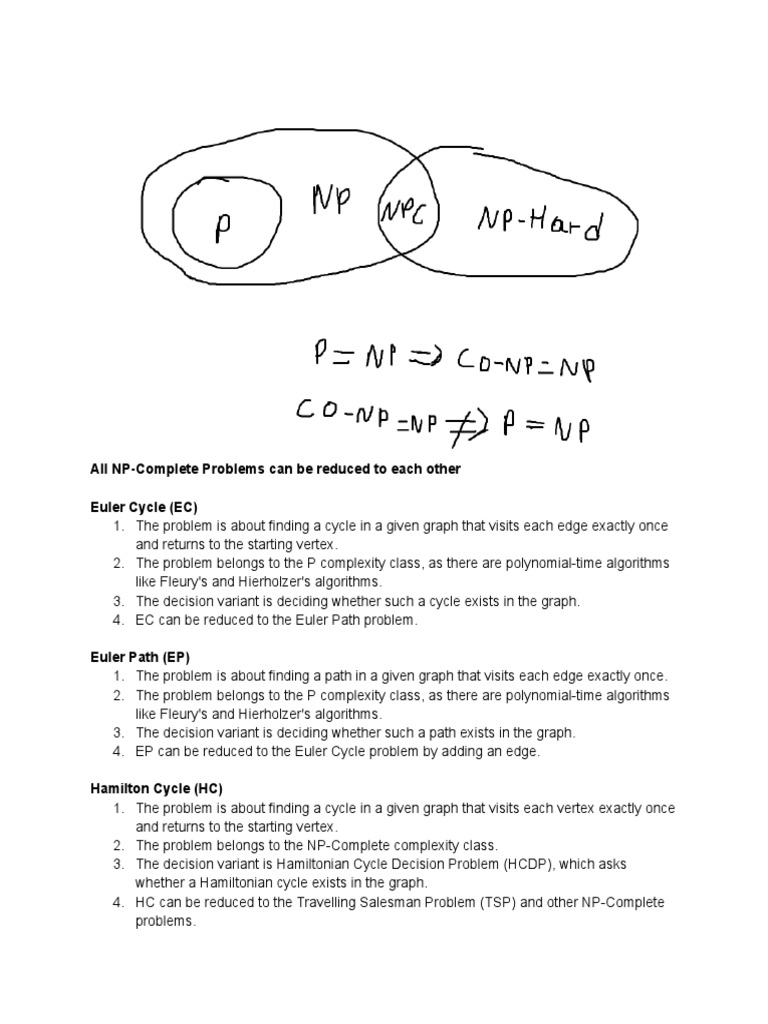 P
NP
NPC
NP-Hard
P = NP => CO-NP = NP
CO-NP = NP ≠> P = NP
All NP-Complete Problems can be reduced to each other
Euler Cycle (EC)
1. The problem is about finding a cycle in a given graph that visits each edge exactly once
and returns to the starting vertex.
2. The problem belongs to the P complexity class, as there are polynomial-time algorithms
like Fleury's and Hierholzer's algorithms.
3. The decision variant is deciding whether such a cycle exists in the graph.
4. EC can be reduced to the Euler Path problem.
Euler Path (EP)
1. The problem is about finding a path in a given graph that visits each edge exactly once.
2. The problem belongs to the P complexity class, as there are polynomial-time algorithms
like Fleury's and Hierholzer's algorithms.
3. The decision variant is deciding whether such a path exists in the graph.
4. EP can be reduced to the Euler Cycle problem by adding an edge.
Hamilton Cycle (HC)
1. The problem is about finding a cycle in a given graph that visits each vertex exactly once
and returns to the starting vertex.
2. The problem belongs to the NP-Complete complexity class.
3. The decision variant is Hamiltonian Cycle Decision Problem (HCDP), which asks
whether a Hamiltonian cycle exists in the graph.
4. HC can be reduced to the Travelling Salesman Problem (TSP) and other NP-Complete
problems.